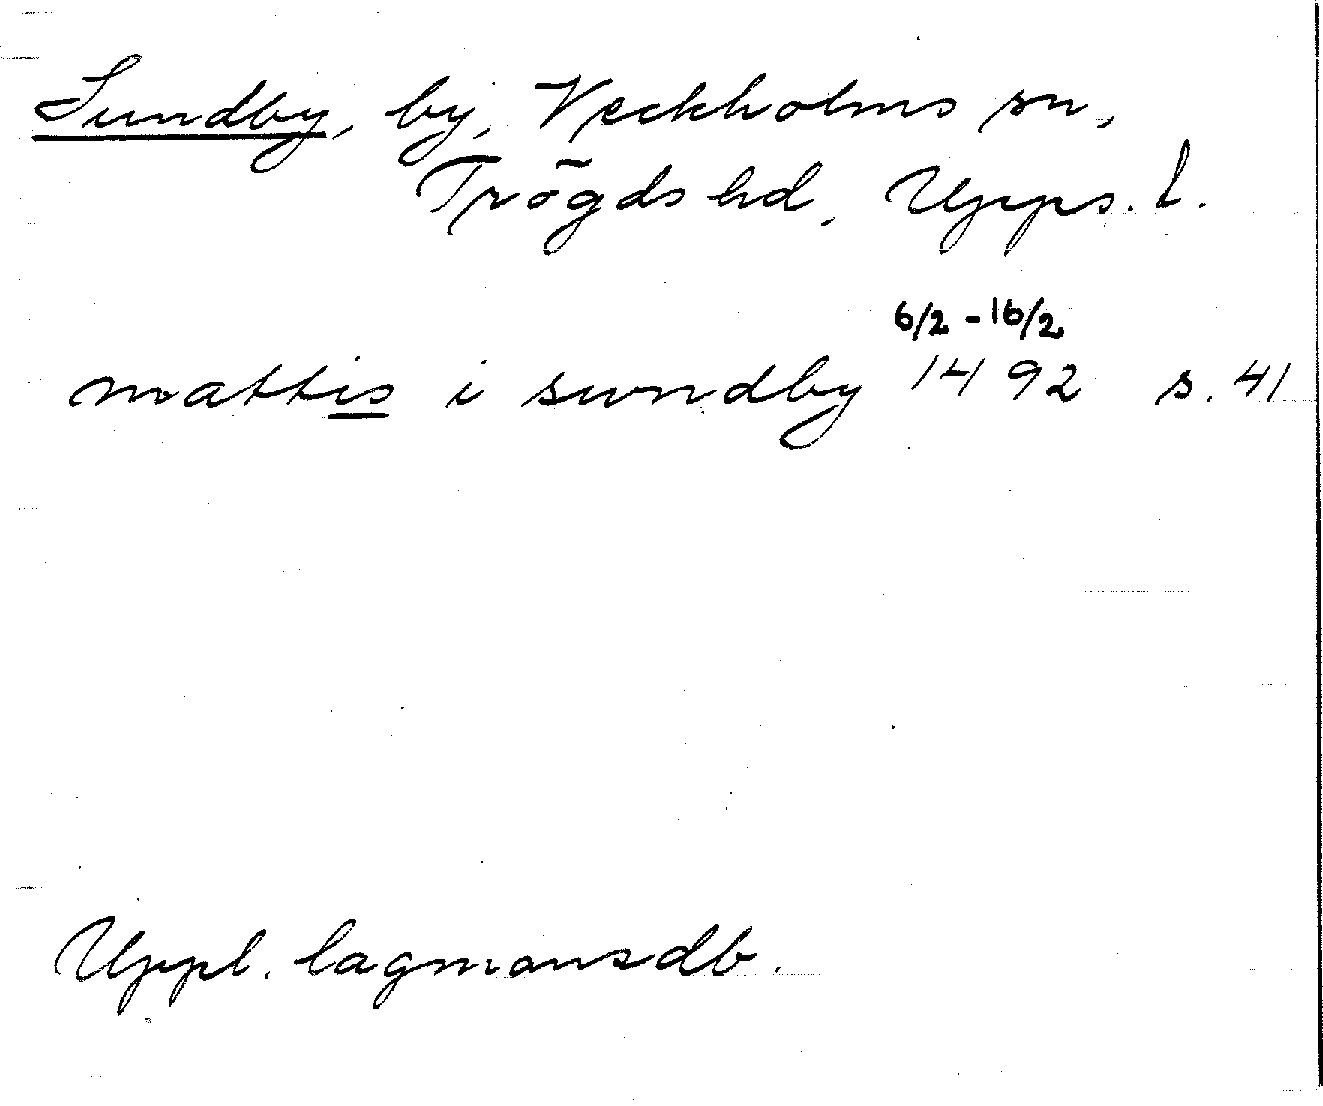 Sundby, by, Veckholms sn,
Trögds hd, Upps. l.
6/2 - 16/2
mattis i sundby 1492 s. 41
Uppl. lagmansdb.